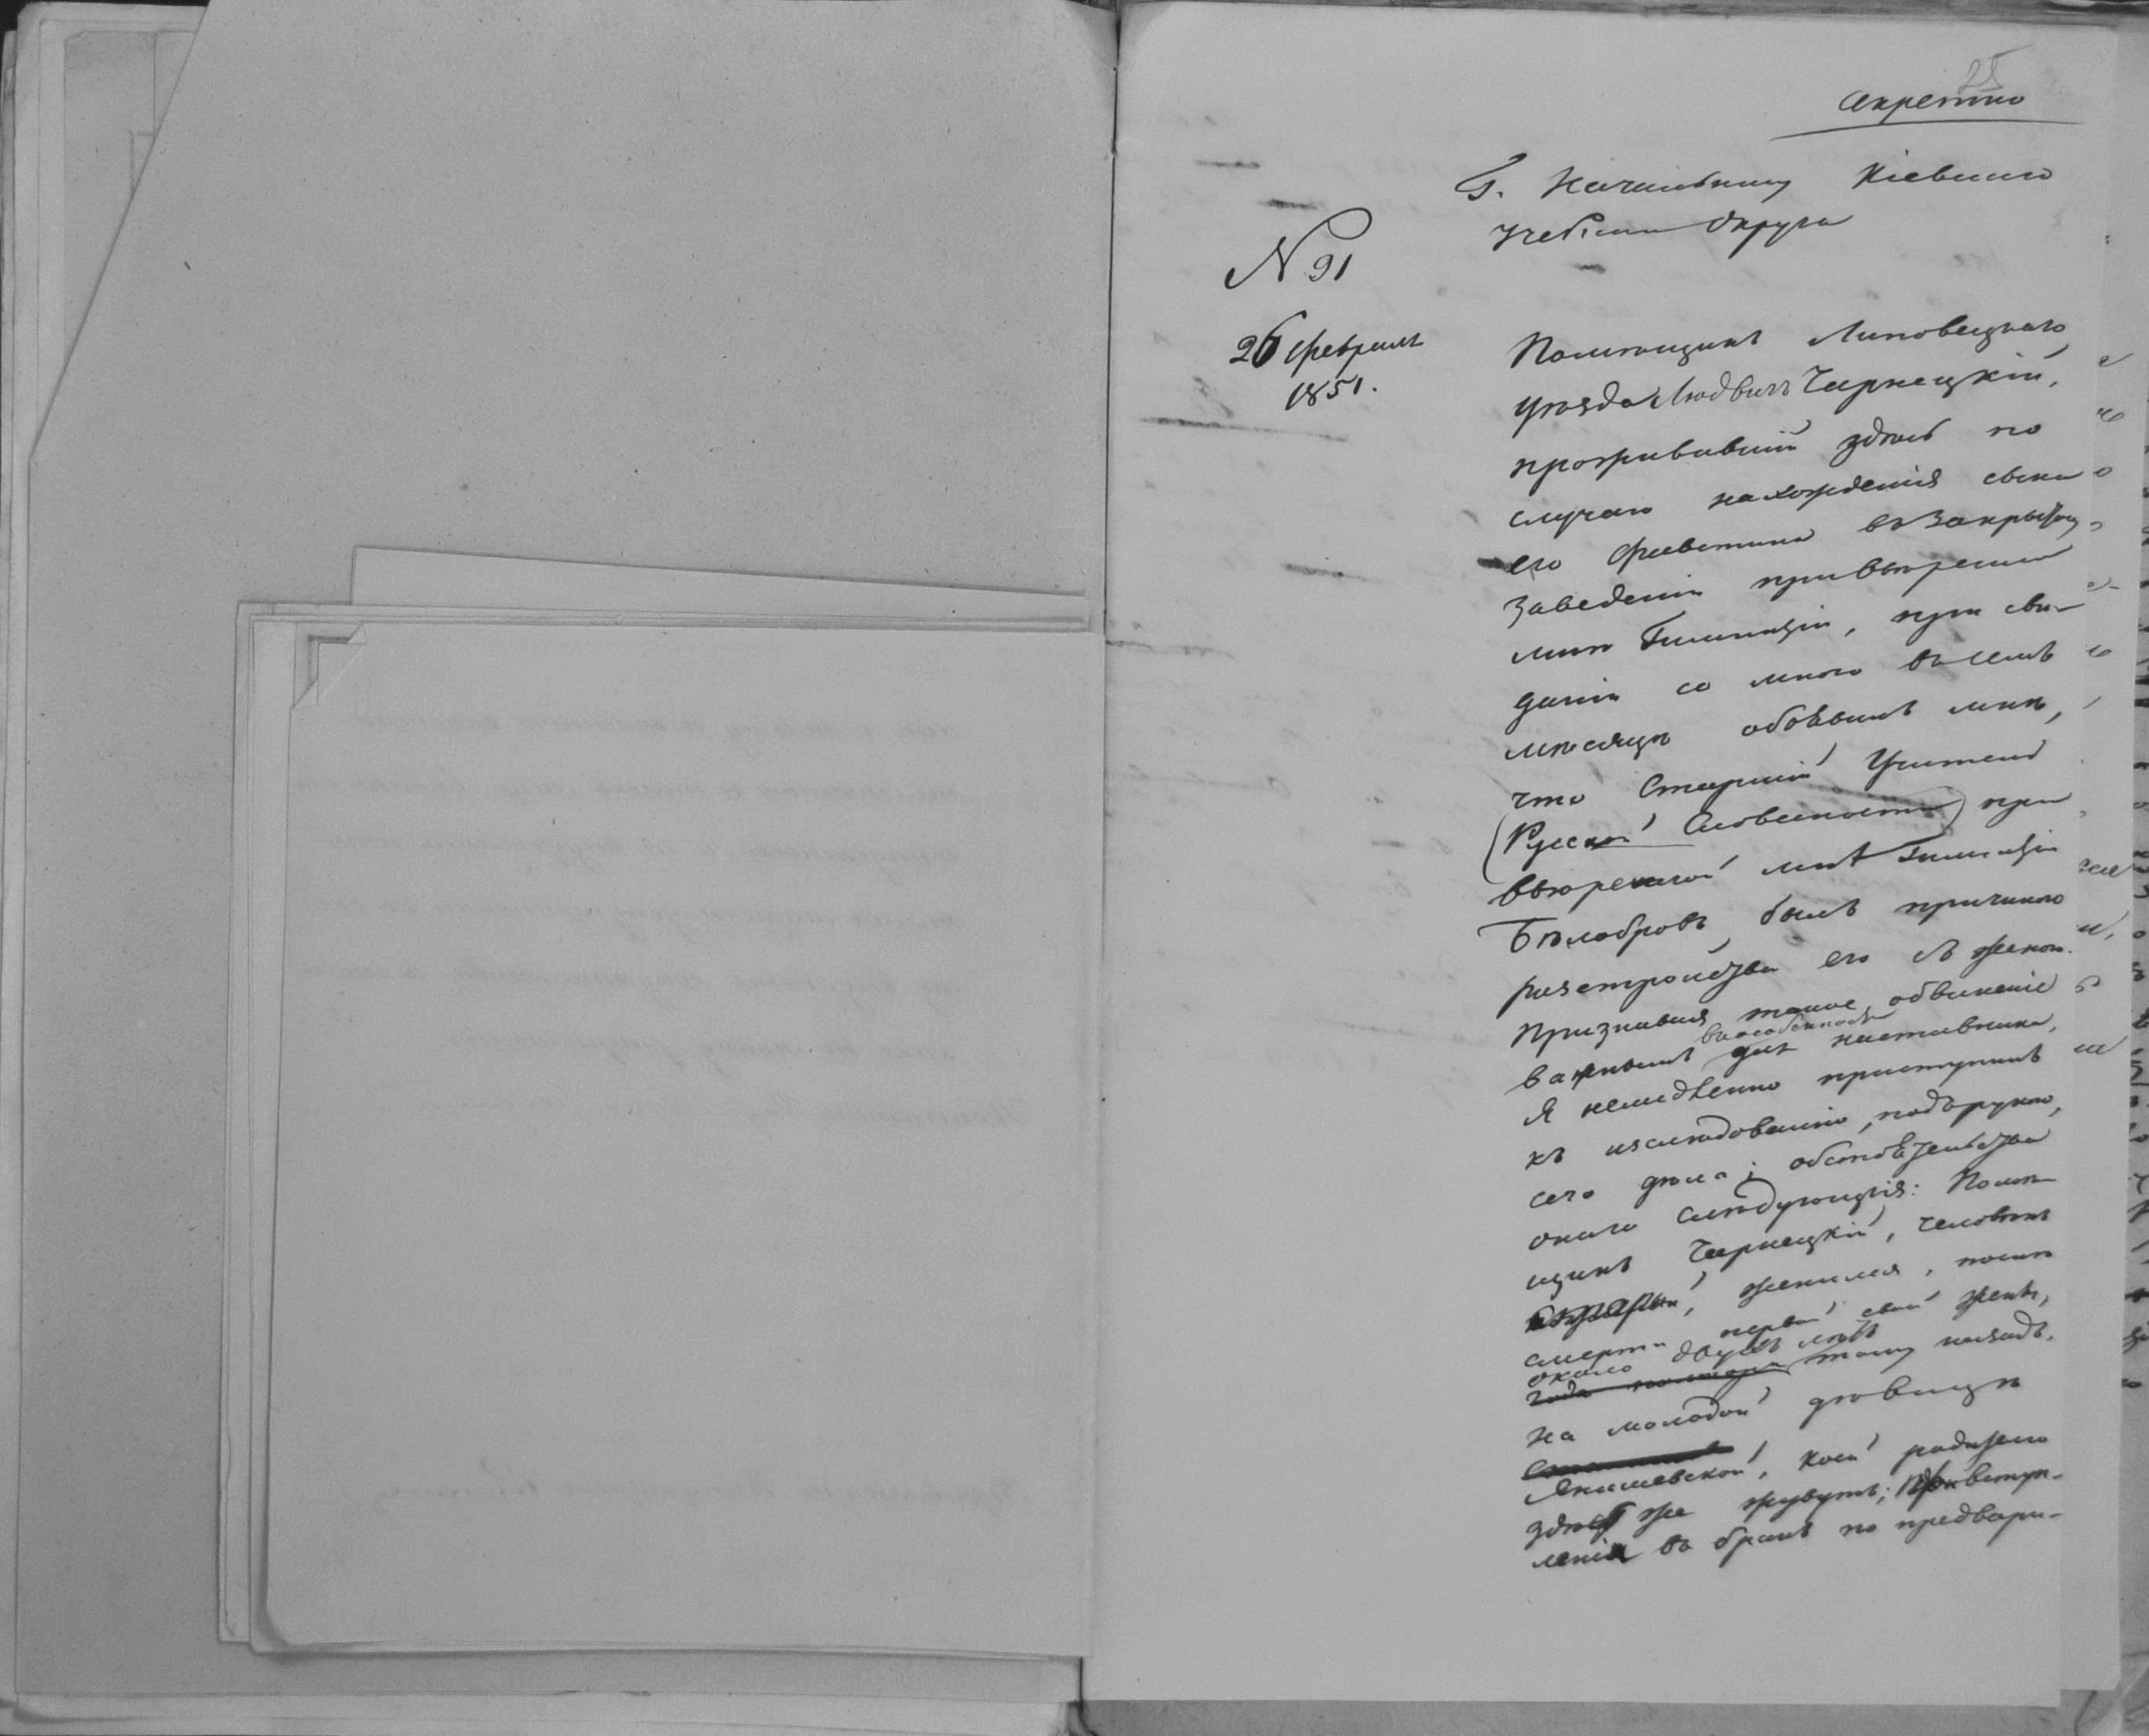 25
Секретно
Г. Начальнику Кіевскаго
Учебнаго Округа
N 91
26 февраля
1851.
Помѣщикъ Липовецкаго
уѣзда Людвигъ Чернецкій,
проживавшій здѣсь по
случаю нахожденія сына
его въ закрытомъ
заведеніи при ввѣренной
мнѣ Гимназіи, при сви-
даніи со мною въ семъ
мѣсяцѣ объявилъ мнѣ,
что Старшій Учитель
(Русской Словесности) при
ввѣренной мнѣ Гимназіи
Бѣлобровъ, былъ причиною
разстройства его съ женою.
Признавая такое обвиненіе
важнымъ въ особенности для наставника,
я немедленно приступилъ
къ изслѣдованію, подъ рукою,
сего дѣла; обстоятельства
онаго слѣдующія: Помѣ-
щикъ Чернецкій, человѣкъ
женился, послѣ
смерти первой своей жены,
около двухъ лѣтъ
года тому назадъ,
на молодой дѣвицѣ
Якишевской, коей родители
здѣсь же живутъ; При вступ-
леніи въ бракъ по предвари-